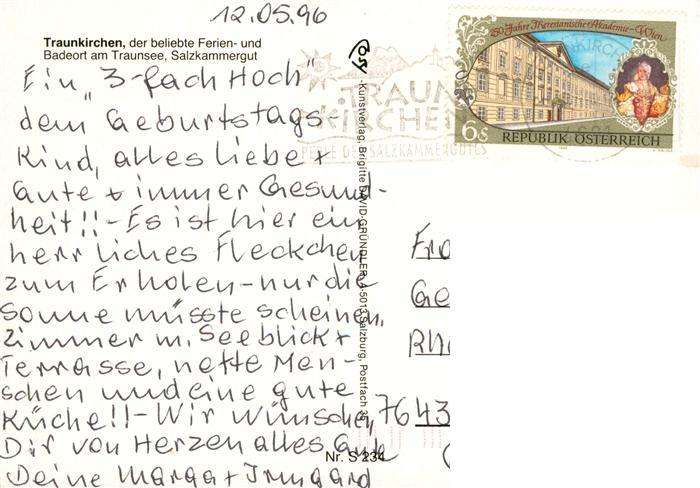 12.05.96
Traunkirchen, der beliebte Ferien- und
Badeort am Traunsee, Salzkammergut
Ein „3-fach Hoch"
dem Geburtstags-
Kind, alles Liebe +
Gute + immer Gesund-
heit!! - Es ist hier ein
herrliches Fleckchen
zum Erholen - nur die
Sonne müsste scheinen,
Zimmer m. Seeblick +
Terrasse, nette Men-
schen und eine gute
Küche!! - Wir wünschen
Dir von Herzen alles Gute
Deine Marga + Irmgard
Cosy
Kunstverlag, Brigitte DAVID-GRÜNDLER, A-5013 Salzburg, Postfach 35
Nr. S 234
250 Jahre Theresianische Akademie - Wien
6s
REPUBLIK ÖSTERREICH
TRAUN
KIRCHEN
PERLE DES SALZKAMMERGUTES
Fra
Ge
Rh
7643